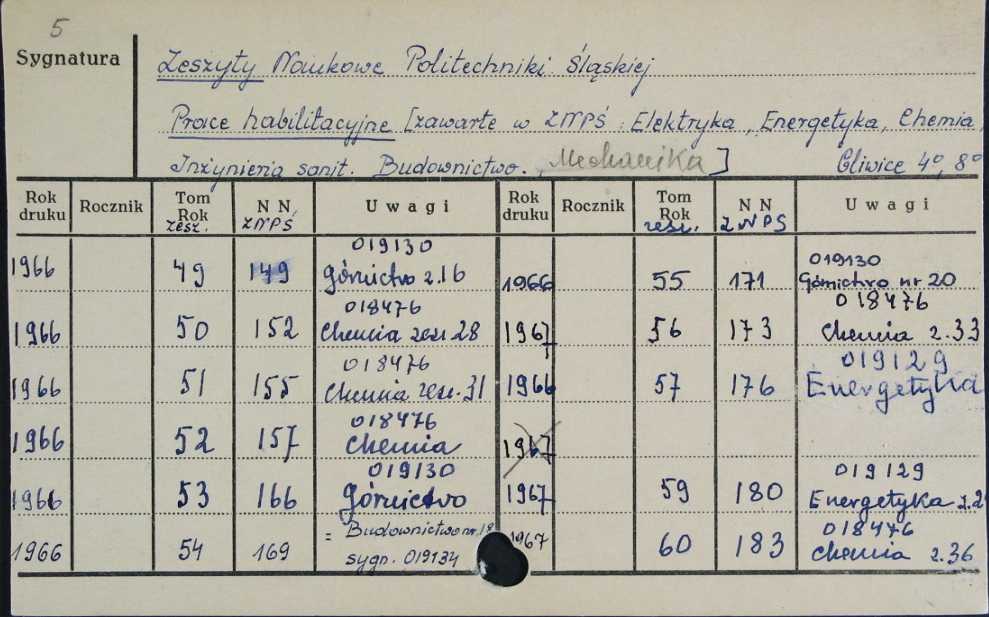 5
Sygnatura
Zeszyty Naukowe Politechniki Śląskiej
Prace habilitacyjne [zawarte w ZNPŚ : Elektryka, Energetyka, Chemia,
Inżynieria sanit. Budownictwo., Mechanika] Gliwice 4°, 8°
Rok druku Rocznik Tom Rok zesz. N N ZNPŚ Uwagi Rok druku Rocznik Tom Rok zesz. N N ZNPS Uwagi
019130
1966 49 149 górnictwo z.16
019130
1966 55 171 Górnictwo nr 20
018476
1966 50 152 Chemia zesz. 28
018476
1967 56 173 Chemia z.33
018476
1966 51 155 Chemia zesz. 31
019129
1966 57 176 Energetyka
018476
1966 52 157 Chemia
1967
019130
1966 53 166 górnictwo
019129
1967 59 180 Energetyka
1966 54 169 = Budownictwo nr. 18
sygn. 019134
018476
1967 60 183 Chemia z.36